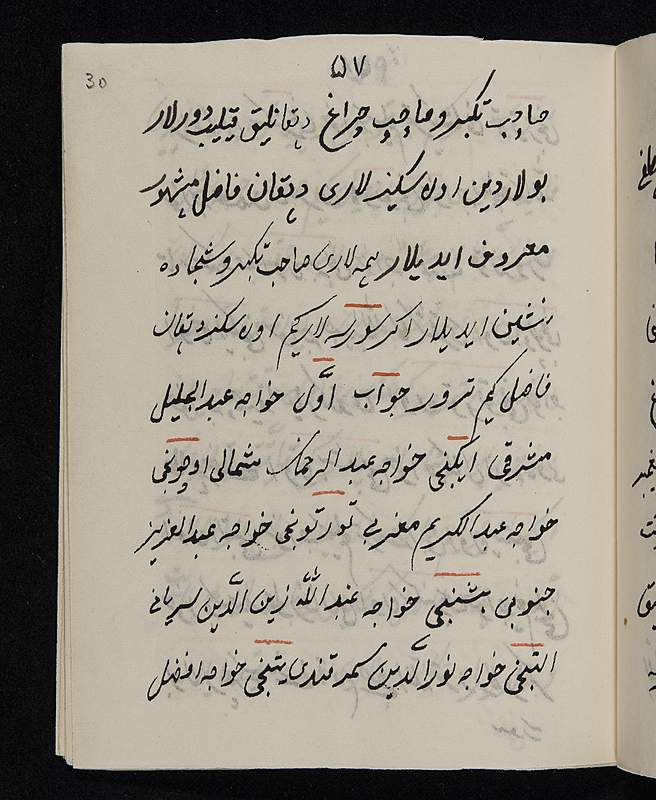 ۵۷
30
صاحب تکبیر و صاحب چراغ دهقانلیق قیلیب دورلار
بولاردین اون سکیز لاری دهقان فاضل مشهور
معروف ایدیلار همه لاری صاحب تکبیر و سجاده
نشین ایدیلار اکر سورسه لار کیم اون سکز دهقان
فاضل کیم تورور جواب اوّل خواجه عبد الجلیل
مشرقی ایکنجی خواجه عبد الرحمان شمالی اوچونجی
خواجه عبد الکریم مغربی تورتونجی خواجه عبد العزیز
جنوبی بشنجی خواجه عبد اللّه زین الّدین سریانی
التنجی خواجه نور الّدین سمرقندی یتنجی خواجه افضل